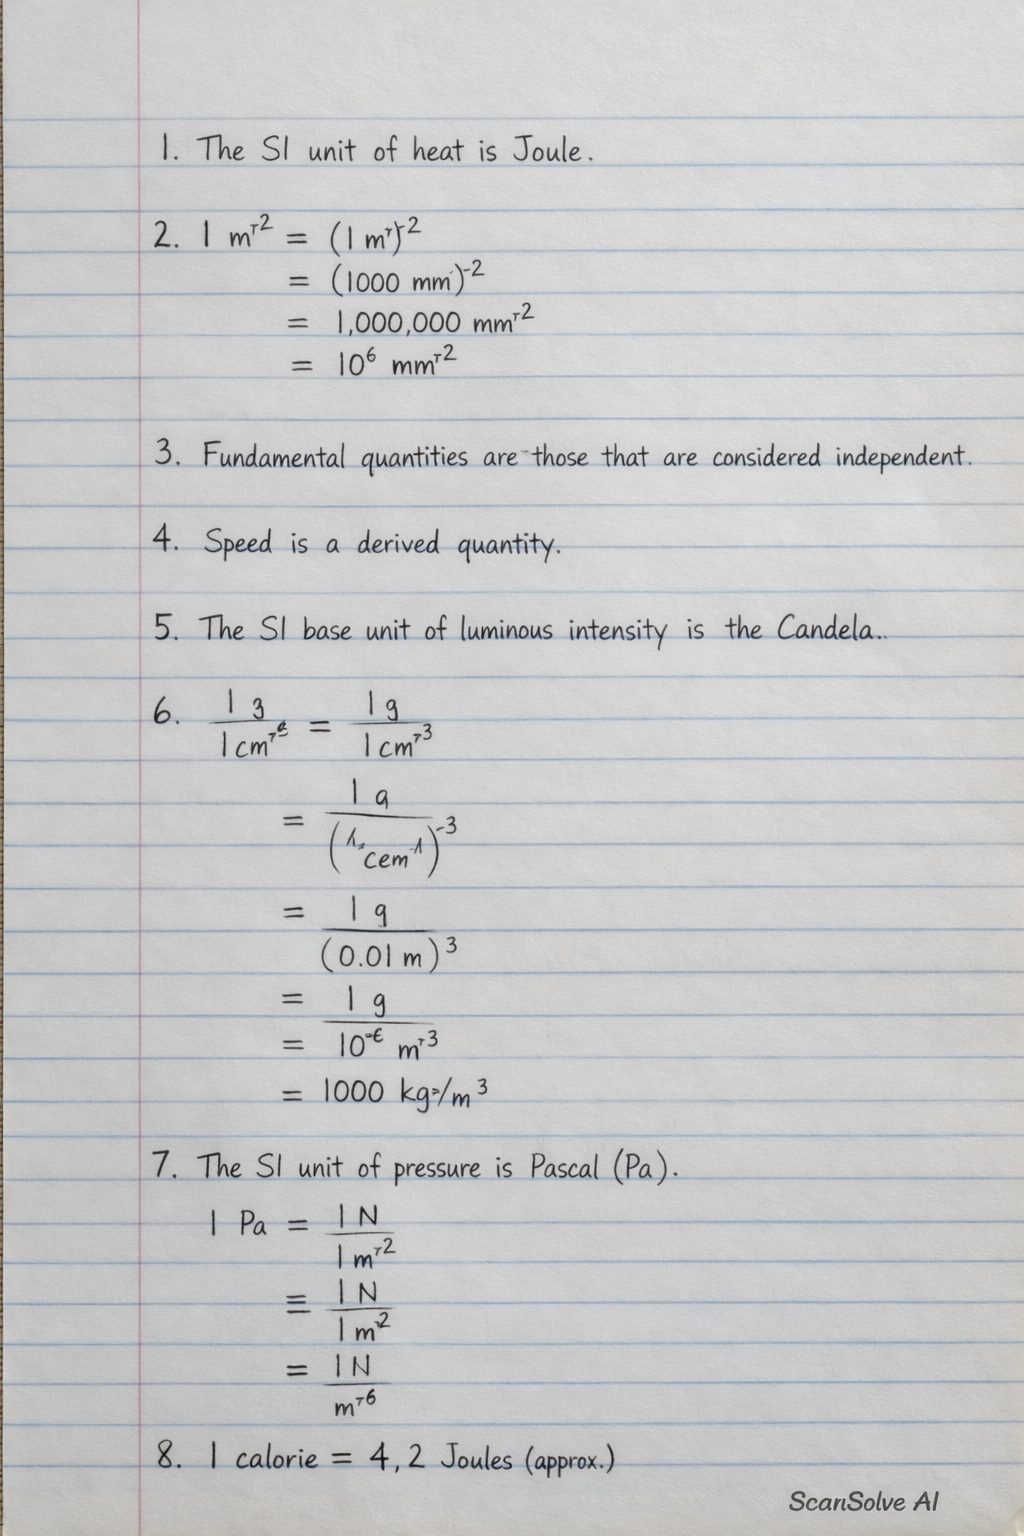 1. The SI unit of heat is Joule.
2. 1 m^-2 = (1 m)^-2
= (1000 mm)^-2
= 1,000,000 mm^-2
= 10^6 mm^-2
3. Fundamental quantities are those that are considered independent.
4. Speed is a derived quantity.
5. The SI base unit of luminous intensity is the Candela..
6. 1 g / 1 cm = 1 g / 1 cm^-3
= 1 g /
= 1 g / (0.01 m)^3
= 1 g
= 10 m^-3
= 1000 kg/m^3
7. The SI unit of pressure is Pascal (Pa).
1 Pa = 1 N / 1 m^-2
≡ 1 N / 1 m^2
= 1 N / m^-6
8. 1 calorie = 4,2 Joules (approx.)
ScanSolve AI